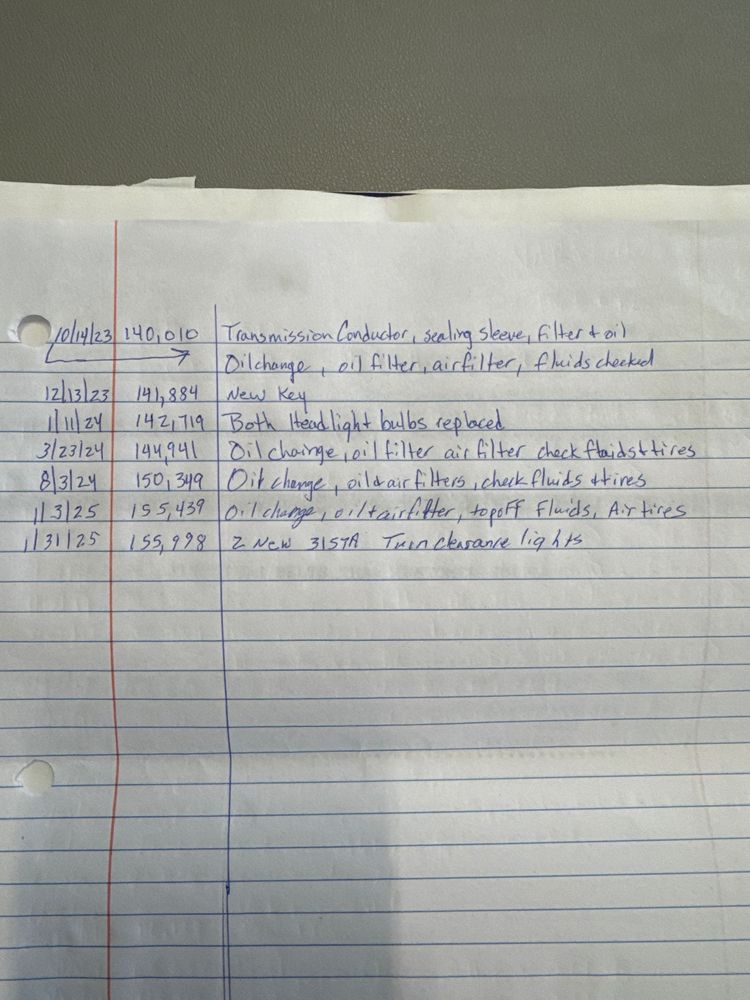 10/14/23 140,010 Transmission Conductor, sealing sleeve, filter & oil
Oilchange, oil filter, airfilter, fluids checked
12/13/23 141,884 New Key
1/11/24 142,719 Both Headlight bulbs replaced
3/23/24 144,941 Oil chainge, oil filter air filter check fluids & tires
8/3/24 150,349 Oil change, oil & air filters, check fluids & tires
1/3/25 155,439 Oil change, oil & airfilter, topoff Fluids, Air tires
1/31/25 155,998 2 New 3157A Turn clearance lights